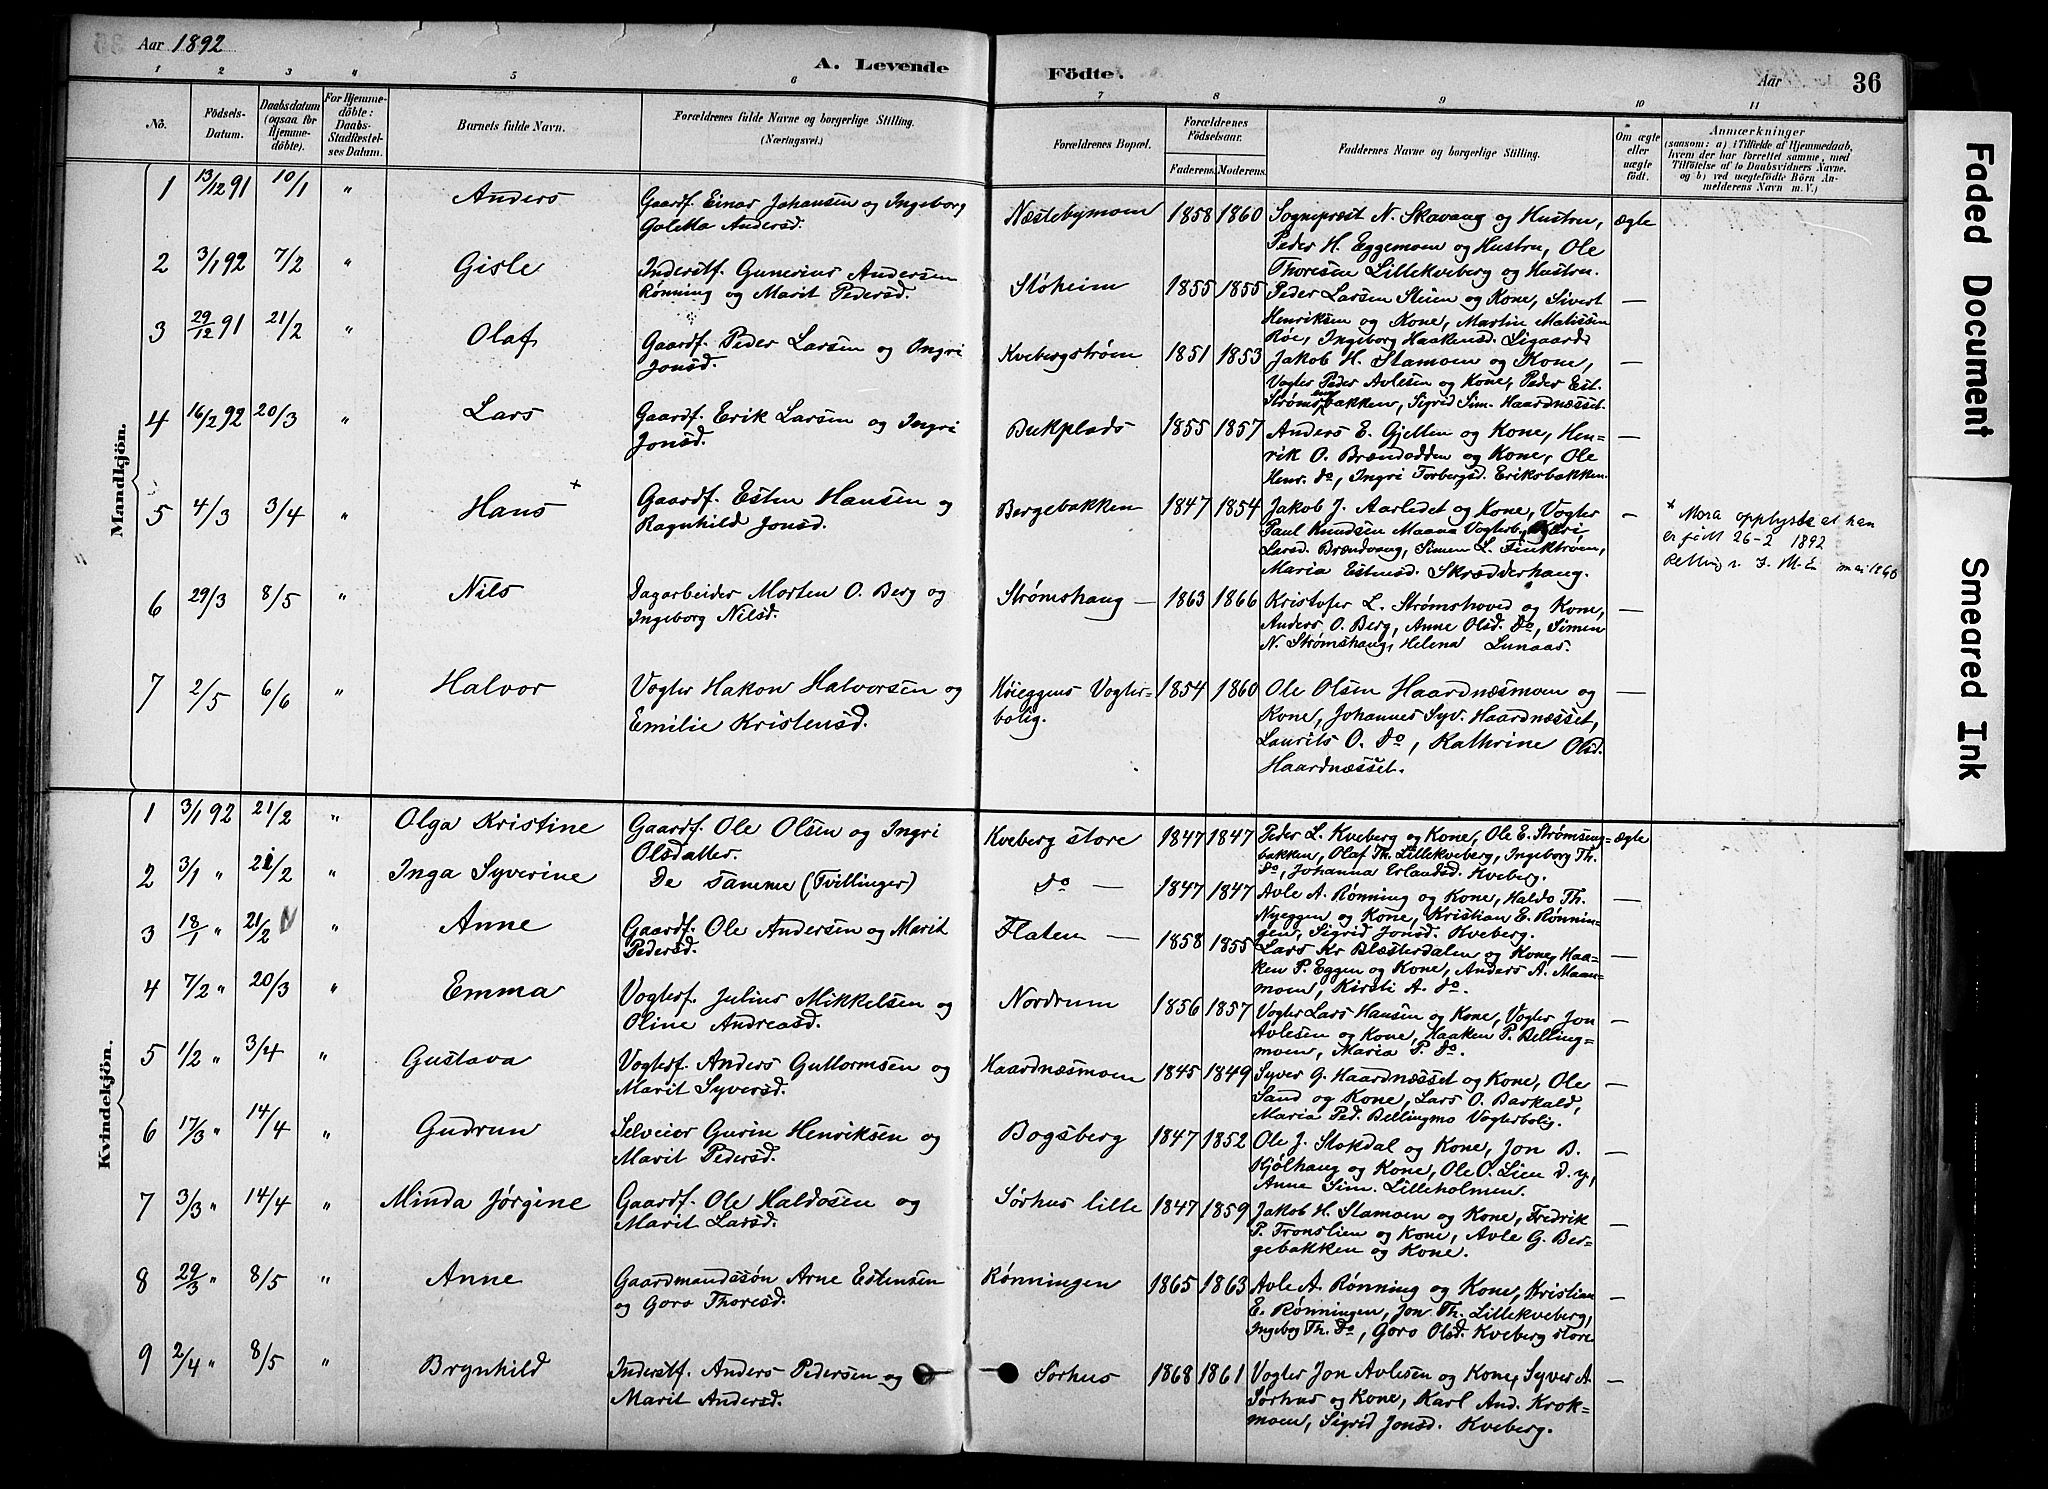 Aar 1892
A. Levende Födte.
Aar 36
1 2 3 4 5 6 7 8 9 10 11
No.
Födsels-Datum.
Daabsdatum (ogsaa for Hjemmedöbte).
For Hjemmedöbte: Daabs-Stadfæstelses Datum.
Barnets fulde Navn.
Forældrenes fulde Navne og borgerlige Stilling.
(Næringsvei.)
Forældrenes Bopæl.
Forældrenes Födselsaar.
Faderens. Moderens.
Faddernes Navne og borgerlige Stilling.
Om ægte eller uægte födt.
Anmærkninger
(saasom: a) i Tilfælde af Hjemmedaab, hvem der har forrettet samme, med Tilföielse af to Daabsvidners Navne, og b) ved uægtefödte Börn Anmelderens Navn m. V.)
Mandkjön.
1 13/12 91 10/1 " Anders Gaardf. Einar Johansen og Ingeborg
Goletta Andersd. Næstebymoen 1858 1860 Sognepræst N. Skavang og Hustru, ægte
Peder H. Eggemoen og Hustru, Ole
Thoresen Lillekveberg og Hustru.
2 3/1 92 7/2 " Gisle Inderstf. Gunerius Andersen
Rønning og Marit Pedersd. Støheim 1855 1855 Peder Larsen Steien og Kone, Sivert —
Henriksen og Kone, Martin Matissen
Røe, Ingeborg Haakensd. Ligaards
3 29/12 91 21/2 " Olaf Gaardf. Peder Larsen og Ongri
Jonsd. Kvebergstrøm 1851 1853 Jakob H. Stamoen og Kone, —
Vogter Peder Avlesen og Kone, Peder Est.
Strømsengbakken, Sigrid Sim. Haardnæsset.
4 16/2 92 20/3 " Lars Gaardf. Erik Larsen og Ingri
Jonsd. Bukplads 1855 1857 Anders E. Gjelten og Kone, Hen- —
rik O. Brændodden og Kone, Ole
Henr. do, Ingri Torbergsd. Eriksbakken.
5 4/3 3/4 " Hans + Gaardf. Esten Hansen og
Ragnhild Jonsd. Bergebakken 1847 1854 Jakob J. Aarledet og Kone, Vogter —
Paul Knudsen Maana Vogterb, Kari
Larsd. Brændvang, Simen L. Finstrøm,
Maria Estensd. Skrædderhaug.
+ Mora opplyste at han
er født 26-2 1892
6 29/3 8/5 " Nils Dagarbeider Morten O. Berg og
Ingeborg Nilsd. Strømshaug — 1863 1866 Kristofer L. Strømshoved og Kone, —
Anders O. Berg, Anne Olsd. Do, Simen
N. Strømshaug, Helena Lunaas.
7 2/5 6/6 " Halvor Vogter Hakon Halvorsen og
Emilie Kristensd. Høieggens Vogter-
bolig. 1854 1860 Ole Olsen Haardnæsmoen og —
Kone, Johannes Syv. Haardnæsset,
Laurits O. Do, Kathrine Olsd.
Haardnæsset.
Kvindekjön.
1 3/1 92 21/2 " Olga Kristine Gaardf. Ole Olsen og Ingri
Olsdatter. Kveberg store 1847 1847 Peder L. Kveberg og Kone, Ole E. Strømseng- ægte
bakken, Olaf Th. Lillekveberg, Ingeborg Th.
Do, Johanna Erlandsd. Kveberg.
2 3/1 " 21/2 " Inga Syverine De samme (Tvillinger) Do — 1847 1847 Avle A. Rønning og Kone, Haldo Th. —
Nyeggen og Kone, Kristian E. Rønnin-
gen, Sigrid Jonsd. Kveberg.
3 18/1 " 21/2 " Anne Gaardf. Ole Andersen og Marit
Pedersd. Flaten — 1858 1855 Lars Kr Blæsterdalen og Kone, Haa- —
ken P. Eggen og Kone, Anders A. Maan-
moen, Kirsti A. do.
4 7/2 " 20/3 " Emma Vogterf. Julius Mikkelsen og
Oline Andreasd. Nordrum 1856 1857 Vogter Lars Hansen og Kone, Vogter Jon —
Avlesen og Kone, Haaken P. Belling-
moen, Maria P. Do.
5 1/2 " 3/4 " Gustava Vogterf. Anders Guttormsen og
Marit Syversd. Haardnæsmoen 1845 1849 Syver G. Haardnæsset og Kone, Ole —
Sand og Kone, Lars O. Barkald,
Maria Ped. Bellingmo Vogterbolig.
6 17/3 " 14/4 " Gudrun Selveier Gurin Henriksen og
Marit Pedersd. Bogsberg 1847 1852 Ole J. Stokdal og Kone, Jon B. —
Kjølhaug og Kone, Ole O. Lien d. y,
Anne Sim. Lilleholmen.
7 3/3 " 14/4 " Minda Jørgine Gaardf. Ole Haldosen og
Marit Larsd. Sørhus lille 1847 1859 Jakob H. Stamoen og Kone, Fredrik —
P. Tronslien og Kone, Avle G. Ber-
gebakken og Kone.
8 29/3 " 8/5 " Anne Gaardmandssøn Arne Estensen
og Goro Thoresd. Rønningen 1865 1863 Avle A. Rønning og Kone, Kristian —
E. Rønningen, Jon Th. Lillekveberg,
Ingebog Th. Do, Goro Olsd. Kveberg store
9 2/4 " 8/5 " Brynhild Inderstf. Anders Pedersen og
Marit Andersd. Sørhus 1868 1861 Vogter Jon Avlesen og Kone, Syver A. —
Sørhus og Kone, Karl And. Krok-
moen, Sigrid Jonsd. Kveberg.
Faded Document
Smeared Ink